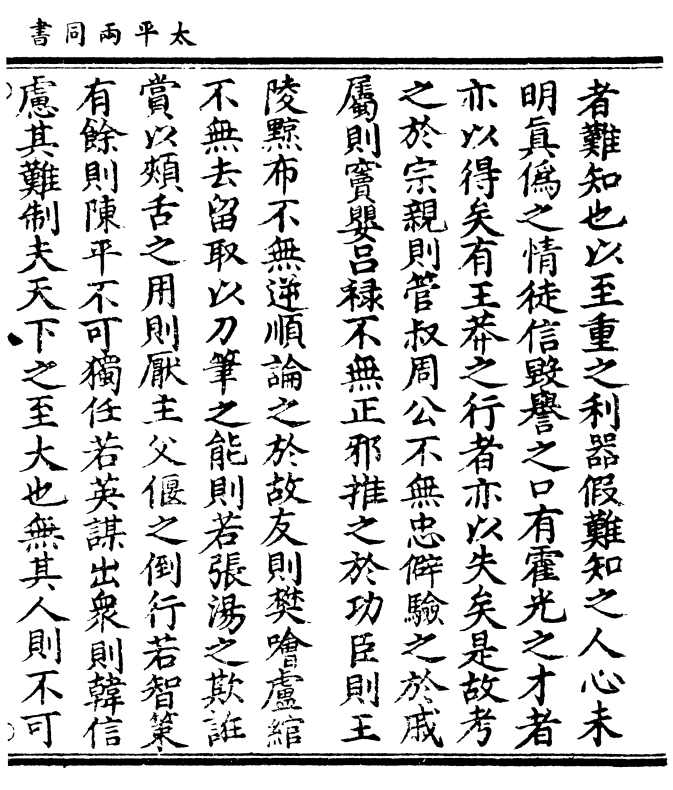 太平兩同書
者難知也以至重之利器假難知之人心未
明真偽之情徒信毀譽之口有霍光之才者
亦以得矣有王莽之行者亦以失矣是故考
之於宗親則管叔周公不無忠僻驗之於戚
屬則竇嬰呂祿不無正邪推之於功臣則王
陵黥布不無逆順論之於故友則樊噲盧綰
不無去留取以刀筆之能則若張湯之欺誑
賞以頰舌之用則厭主父偃之倒行若智策
有餘則陳平不可獨任若英謀出衆則韓信
慮其難制夫天下之至大也無其人則不可